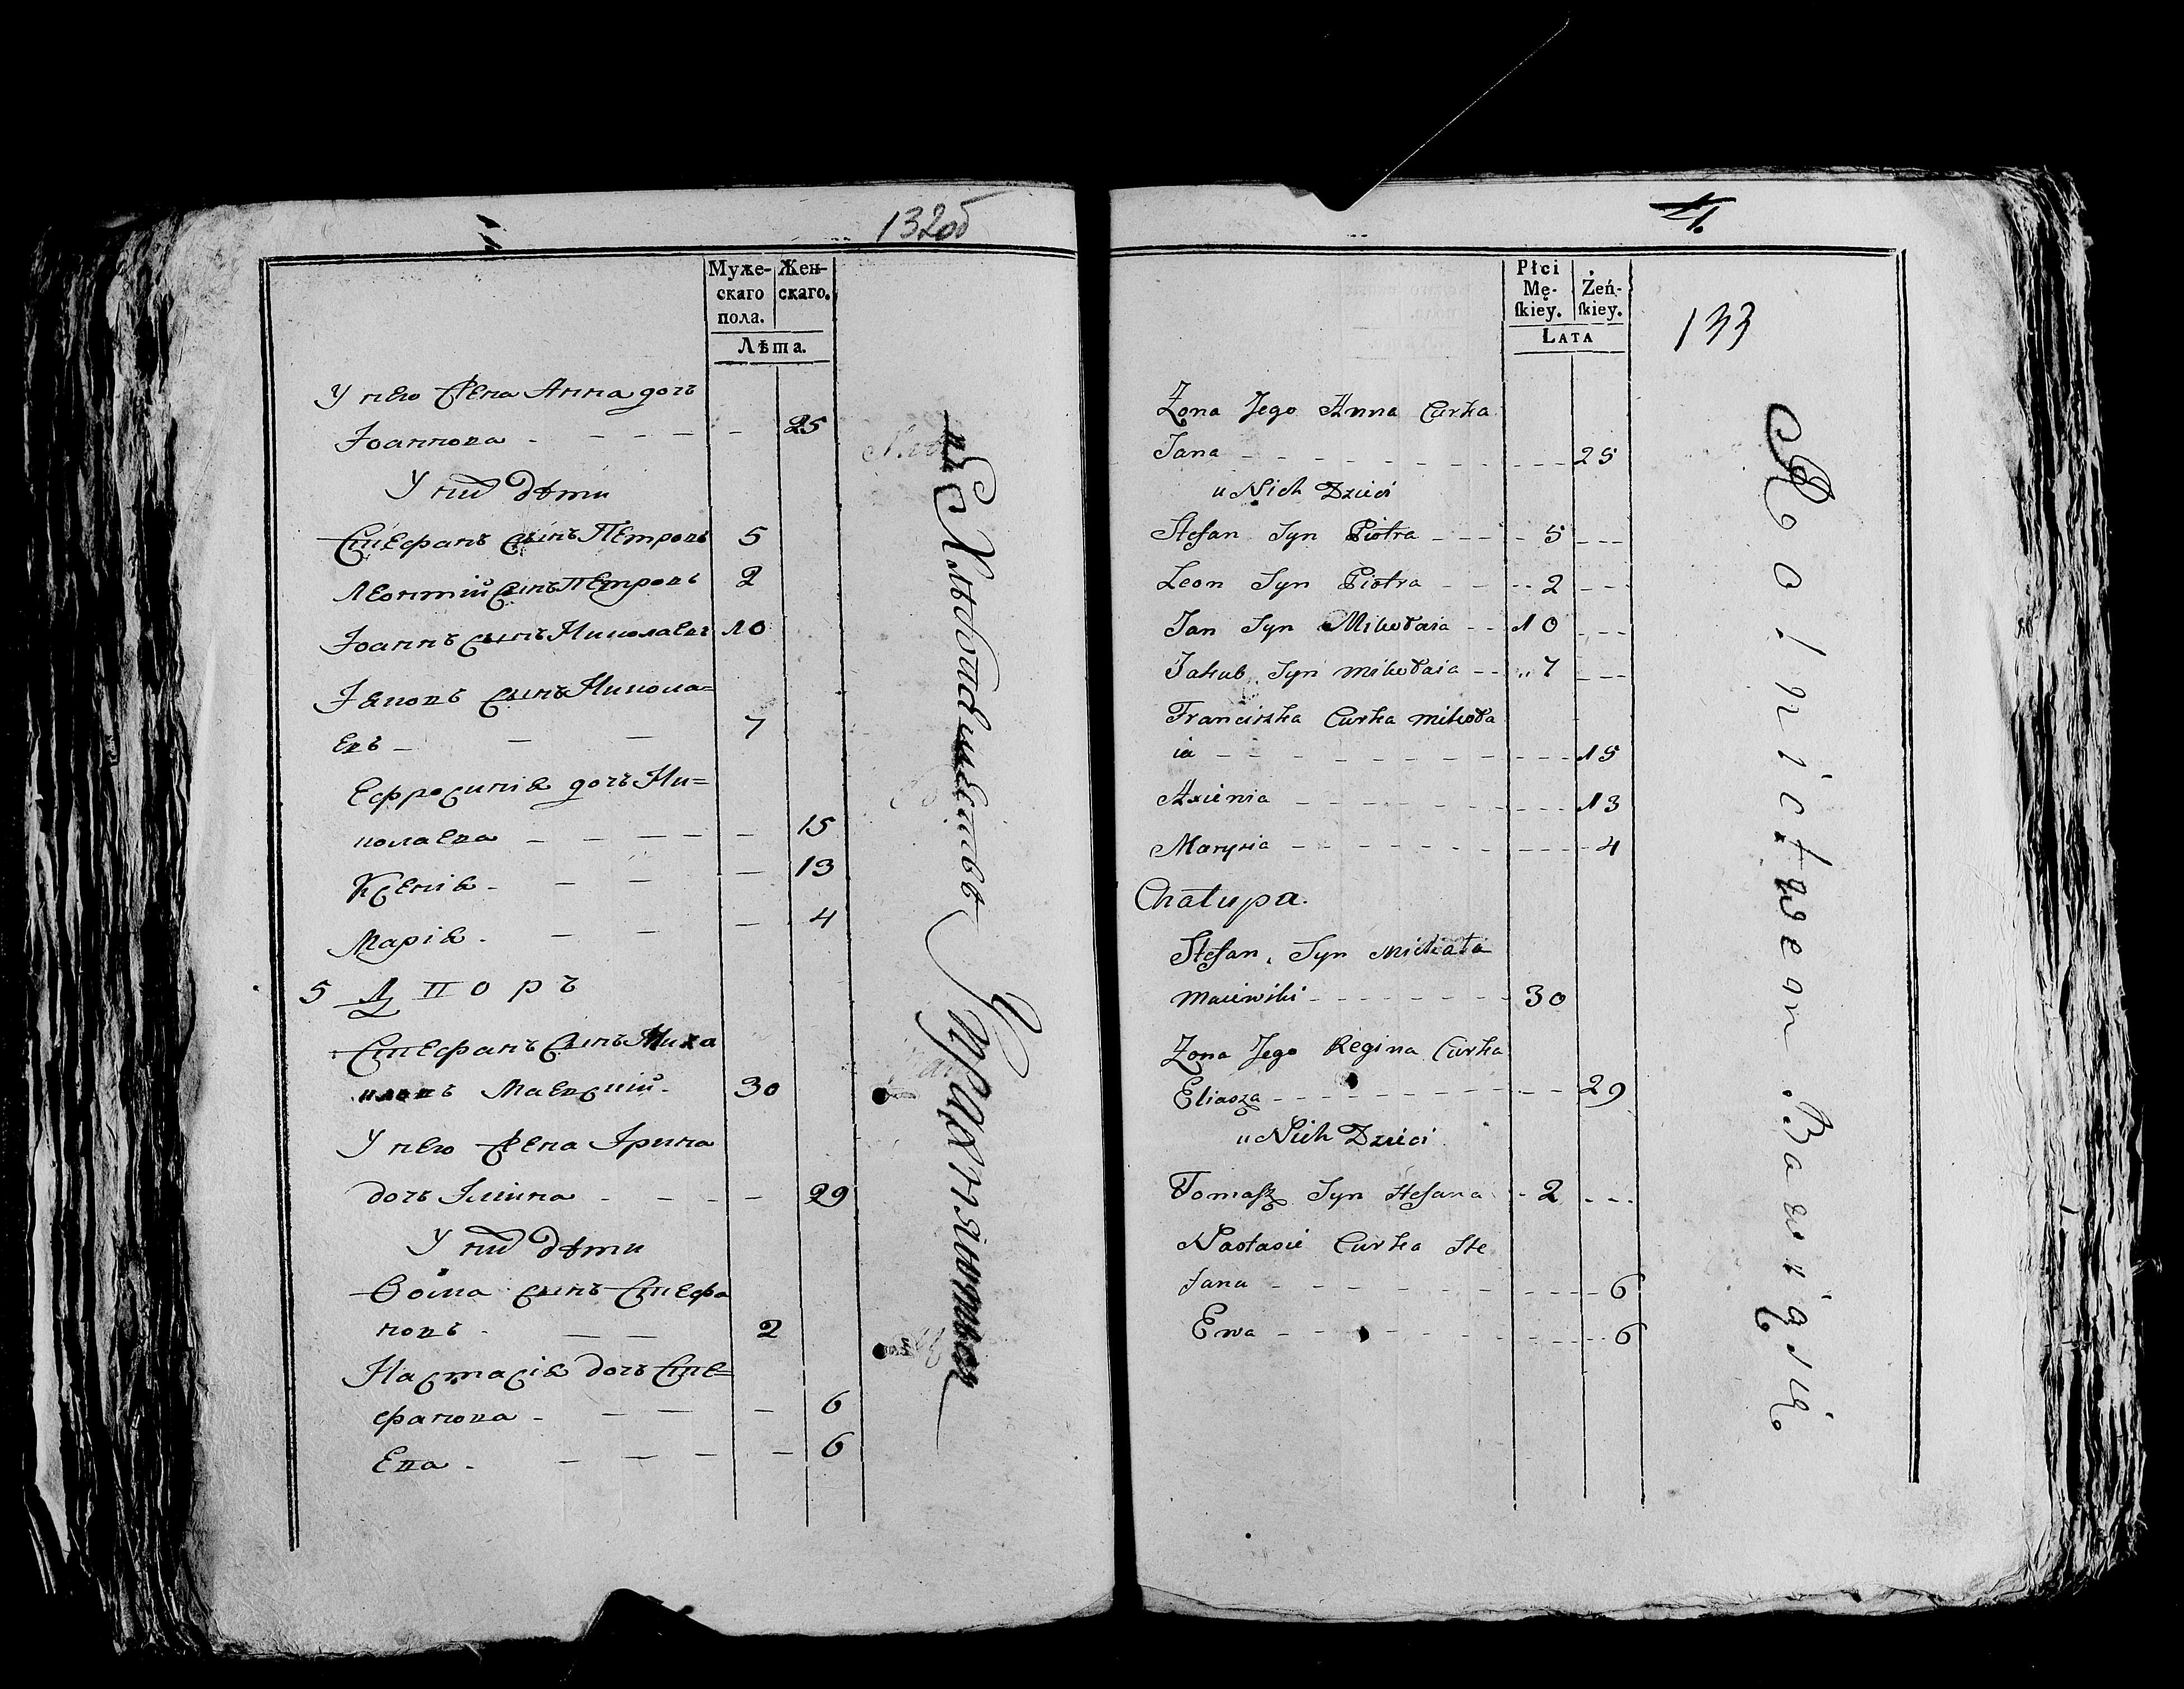 132об
Муже-
скаго
пола.
Жен-
скаго.
Лѣта.
У него Жена Анна дочь
Іоаннова - - - - - 25
У них Дѣти
Стефанъ Сынъ Петровъ 5
Леонтій Сынъ Петровъ 2
Іоаннъ Сынъ Николаевъ 10
Іаковъ Сынъ Никола=
евъ - - - 7
Ефросинія дочь Ни=
колаева - - - - - 15
Ксенія - - - - 13
Марія - - - - 4
5 Дворъ
Стефанъ Сынъ Миха
иловъ Маевскій - 30
У него Жена Ирина
дочь Іліина - - - - 29
У них Дѣти
Ѳома Сынъ Стефа
новъ - - - 2
Настасія Дочь Сте=
фанова - - - - 6
Ева - - - - - 6
Хлѣбопашествѣ Упражняются
4.
133
Płci
Mę-
ſkiey.
Żeń-
ſkiey.
Lata
Zona Jego Anna Curka
Jana - - - - - 25
u Nich Dzieci
Stefan Syn Piotra - - - - 5 - - -
Leon Syn Piotra - - - - 2 - - -
Jan Syn Mikołaia - - 10 - - -
Jakub Syn mikołaia - - - 7 - - -
Franciszka Curka mikoła
ia - - - - - - 15
Axienia - - - - - 13
Marysia - - - - - 4
Chałupa.
Stefan, Syn Michała
maiewski - - - - - 30
Zona Jego Regina Curka
Eliasza - - - - - - 29
u Nich Dzieci
Tomaſz Syn Stefana - 2 - - -
Nastasie Curka Ste
fana - - - - - 6
Ewa - - - - - 6
Rolnictwem Bawią się.